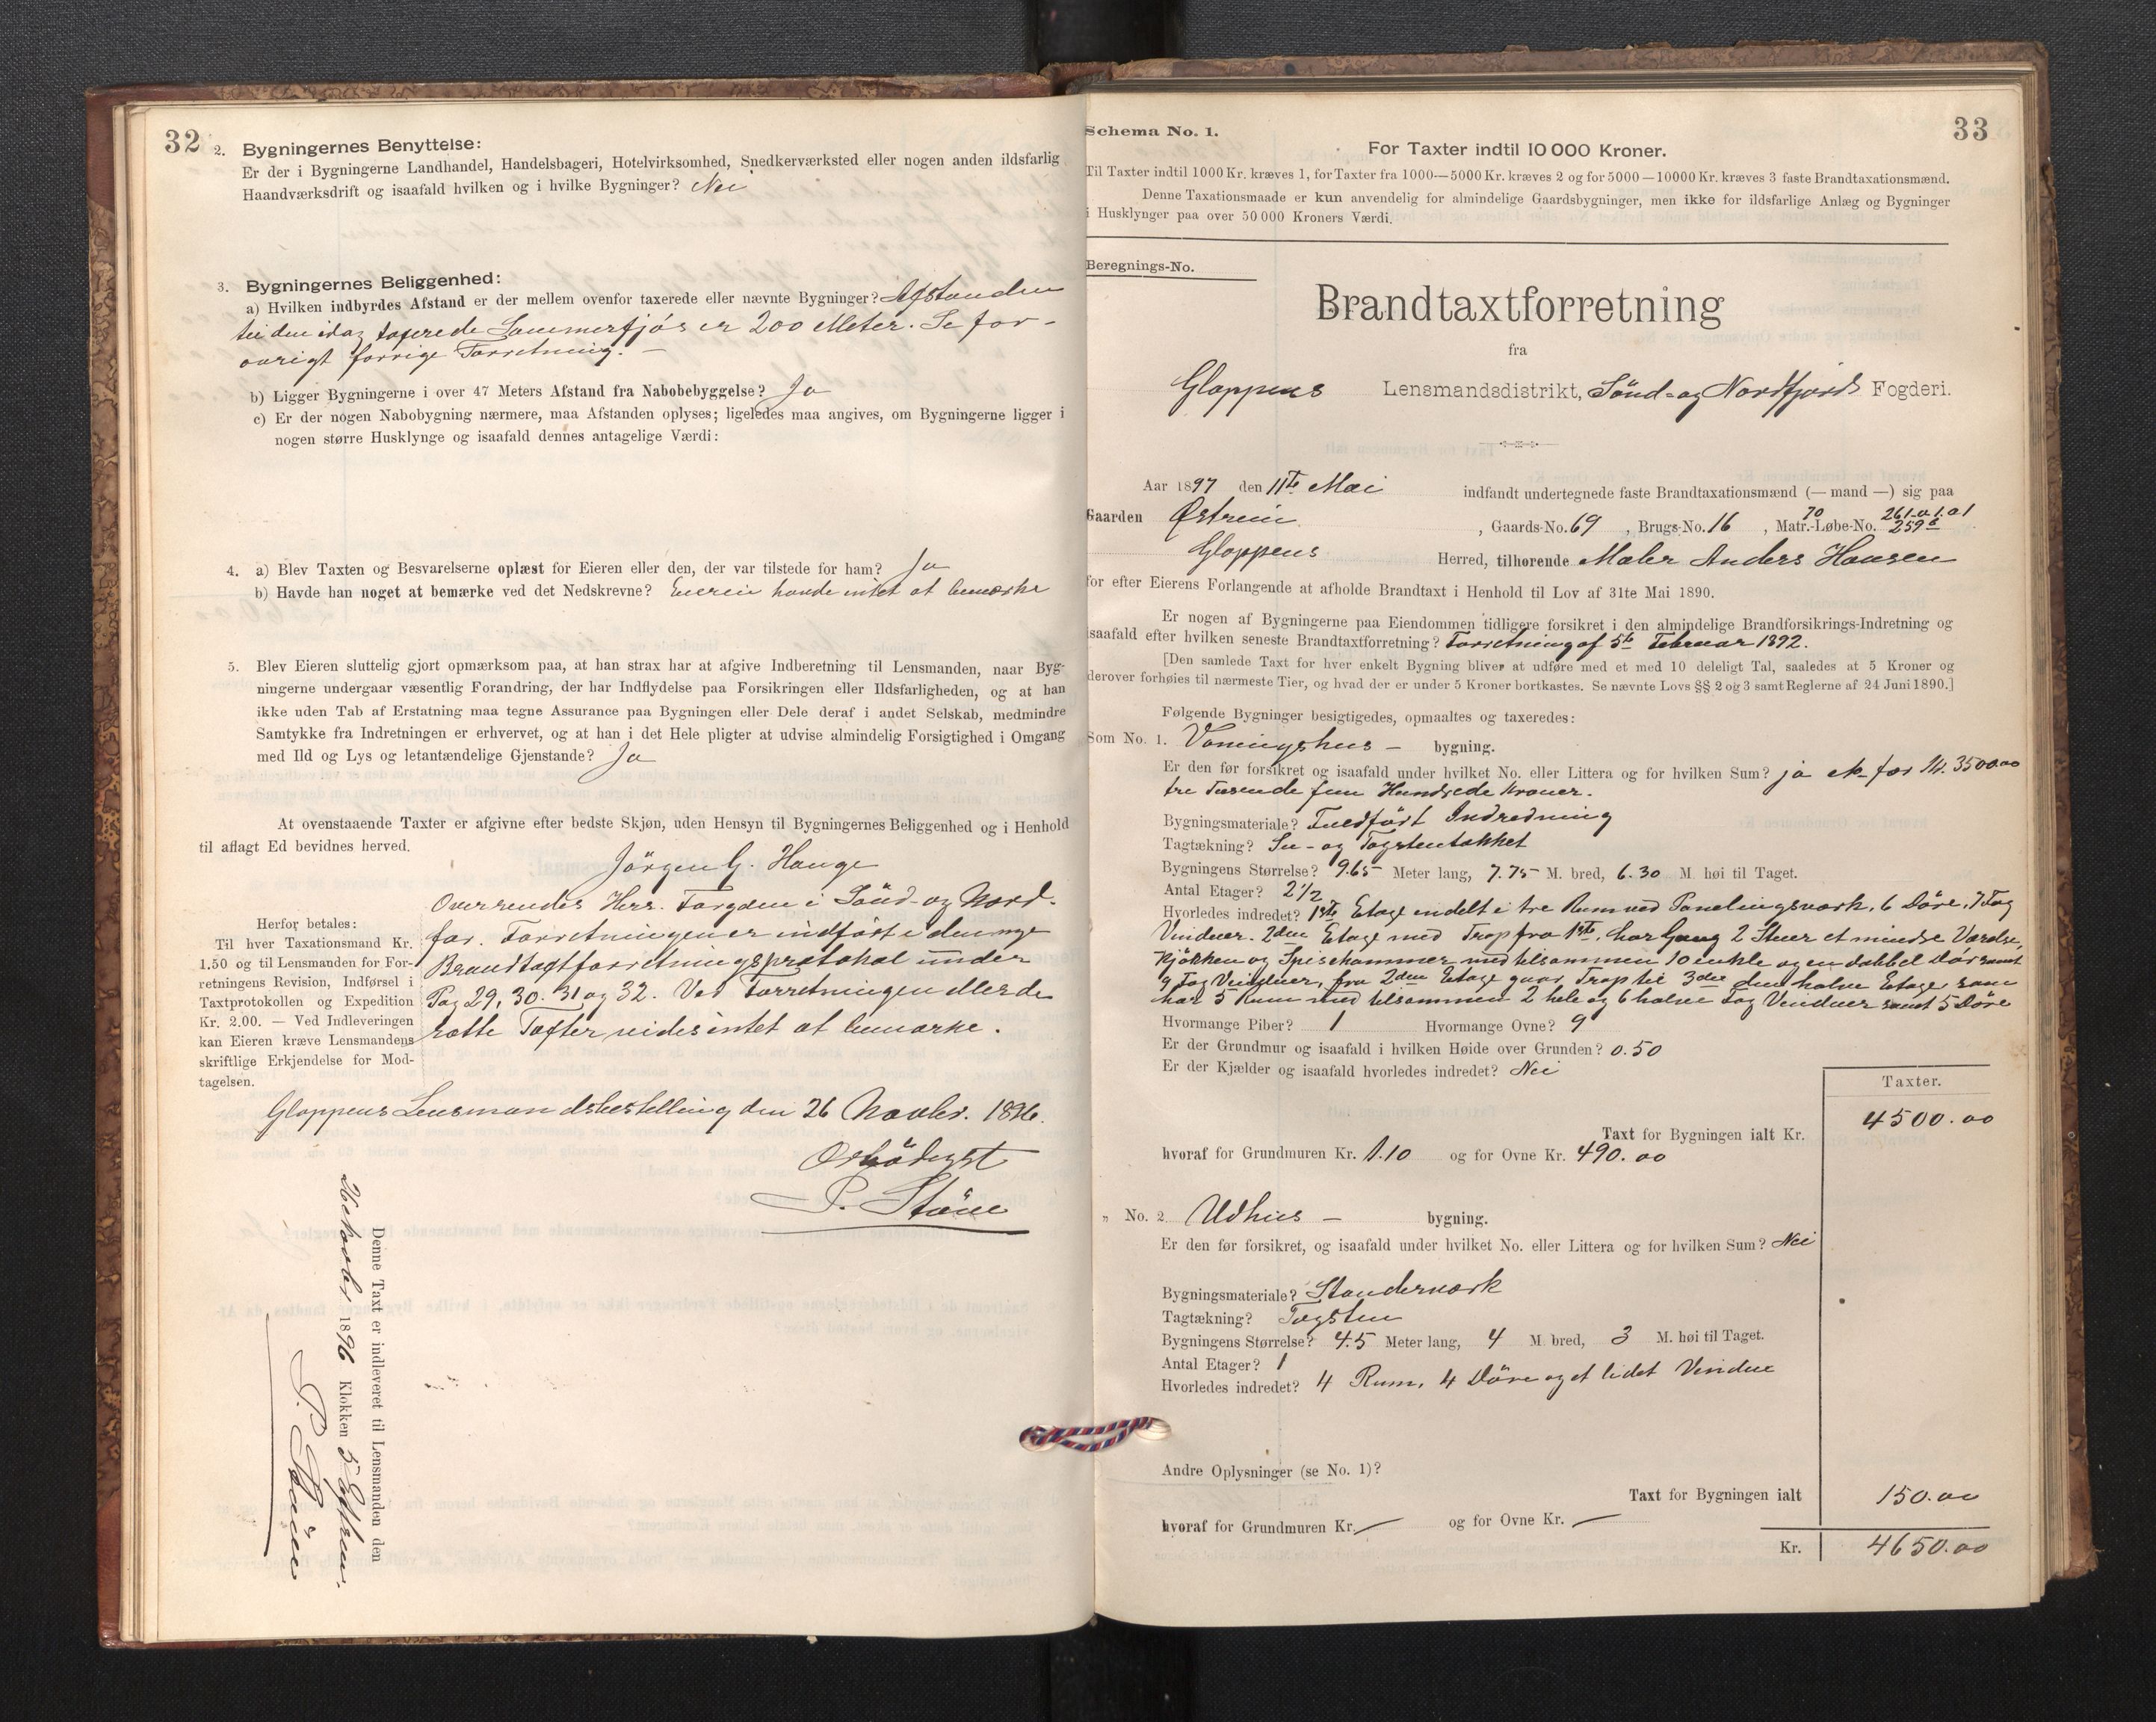 32
2. Bygningernes Benyttelse:
Er der i Bygningerne Landhandel, Handelsbageri, Hotelvirksomhed, Snedkerværksted eller nogen anden ildsfarlig
Haandværksdrift og isaafald hvilken og i hvilke Bygninger? Nei
3. Bygningernes Beliggenhed:
a) Hvilken indbyrdes Afstand er der mellem ovenfor taxerede eller nævnte Bygninger? Afstanden
til den idag taxerede Sommerfjøs er 200 Meter. Se for-
øvrigt forrige Forretning. —
b) Ligger Bygningerne i over 47 Meters Afstand fra Nabobebyggelse? Ja
c) Er der nogen Nabobygning nærmere, maa Afstanden oplyses; ligeledes maa angives, om Bygningerne ligger i
nogen større Husklynge og isaafald dennes antagelige Værdi:
4. a) Blev Taxten og Besvarelserne oplæst for Eieren eller den, der var tilstede for ham? Ja
b) Havde han noget at bemærke ved det Nedskrevne? Eieren havde intet at bemærke
5. Blev Eieren sluttelig gjort opmærksom paa, at han strax har at afgive Indberetning til Lensmanden, naar Byg-
ningerne undergaar væsentlig Forandring, der har Indflydelse paa Forsikringen eller Ildsfarligheden, og at han
ikke uden Tab af Erstatning maa tegne Assurance paa Bygningen eller Dele deraf i andet Selskab, medmindre
Samtykke fra Indretningen er erhvervet, og at han i det Hele pligter at udvise almindelig Forsigtighed i Omgang
med Ild og Lys og letantændelige Gjenstande? Ja
At ovenstaaende Taxter er afgivne efter bedste Skjøn, uden Hensyn til Bygningernes Beliggenhed og i Henhold
til aflagt Ed bevidnes herved.
Jörgen G. Hauge
Oversendes Herr. Fogden i Sönd- og Nord-
for. Forretningen er indført i den nye
Brandtaxtforretningsprotokol under
Pag 29, 30. 31 og 32. Ved Forretningen eller de
satte Taxter vides intet at bemærke.
Herfor betales:
Til hver Taxationsmand Kr.
1.50 og til Lensmanden for For-
retningens Revision, Indførsel i
Taxtprotokollen og Expedition
Kr. 2.00. — Ved Indleveringen
kan Eieren kræve Lensmandens
skriftlige Erkjendelse for Mod-
tagelsen.
Gloppens Lensmandsbestilling den 26 Novbr. 1896.
Ærbödigst
P. Støue
Denne Taxt er indleveret til Lensmanden den
26 Novbr 1896 Klokken 5 Eftm.
P. Støue
Schema No. 1.
33
For Taxter indtil 10 000 Kroner.
Til Taxter indtil 1000 Kr. kræves 1, for Taxter fra 1000—5000 Kr. kræves 2 og for 5000—10000 Kr. kræves 3 faste Brandtaxationsmænd.
Denne Taxationsmaade er kun anvendelig for almindelige Gaardsbygninger, men ikke for ildsfarlige Anlæg og Bygninger
i Husklynger paa over 50 000 Kroners Værdi.
Beregnings-No.
Brandtaxtforretning
fra
Gloppens Lensmandsdistrikt, Sönd- og Nordfjords Fogderi.
Aar 1897 den 11te Mai indfandt undertegnede faste Brandtaxationsmænd (— mand —) sig paa
Gaarden Østreim, Gaards-No. 69, Brugs-No. 16, Matr.-Løbe-No. 259
70 261.a.1.a1
Gloppens Herred, tilhørende Maler Anders Hansen
for efter Eierens Forlangende at afholde Brandtaxt i Henhold til Lov af 31te Mai 1890.
Er nogen af Bygningerne paa Eiendommen tidligere forsikret i den almindelige Brandforsikrings-Indretning og
isaafald efter hvilken seneste Brandtaxtforretning? Forretning af 5te Februar 1892.
[Den samlede Taxt for hver enkelt Bygning bliver at udføre med et med 10 deleligt Tal, saaledes at 5 Kroner og
derover forhøies til nærmeste Tier, og hvad der er under 5 Kroner bortkastes. Se nævnte Lovs §§ 2 og 3 samt Reglerne af 24 Juni 1890.]
Følgende Bygninger besigtigedes, opmaaltes og taxeredes:
Som No. 1. Vaaningshus — bygning.
Er den før forsikret og isaafald under hvilket No. eller Littera og for hvilken Sum? ja for Kr. 3500.00
tre Tusende fem Hundrede Kroner.
Bygningsmateriale? Fuldført Indredning
Tagtækning? Su- og Tagstentækket
Bygningens Størrelse? 9.65 Meter lang, 7.75 M. bred, 6.30 M. høi til Taget.
Antal Etager? 2½
Hvorledes indredet? 1ste Etage indelt i tre Rum ved Panelingsværk, 6 Døre, 7 Fag
Vinduer. 2den Etage med Trap fra 1ste, har Gang 2 Stuer et mindre Værelse,
Kjøkken og Spisekammer med tilsammen 10 enkle og en dobbel Dør samt
9 Fag Vinduer, fra 2den Etage gaar Trap til 3die den halve Etage som
har 5 Rum med tilsammen 2 hele og 6 halve Fag Vinduer samt 5 Døre
Hvormange Piber? 1 Hvormange Ovne? 9
Er der Grundmur og isaafald i hvilken Høide over Grunden? 0.50
Er der Kjælder og isaafald hvorledes indredet? Nei
Taxter.
Taxt for Bygningen ialt Kr. 4500.00
hvoraf for Grundmuren Kr. 1.10 og for Ovne Kr. 490.00
„ No. 2 Udhus — bygning.
Er den før forsikret, og isaafald under hvilket No. eller Littera og for hvilken Sum? Nei
Bygningsmateriale? Standerværk
Tagtækning? Tagsten
Bygningens Størrelse? 4.5 Meter lang, 4 M. bred, 3 M. høi til Taget.
Antal Etager? 1
Hvorledes indredet? 4 Rum, 4 Døre og et lidet Vindue
Andre Oplysninger (se No. 1)?
Taxt for Bygningen ialt 150.00
hvoraf for Grundmuren Kr. — og for Ovne Kr. —
Kr. 4650.00